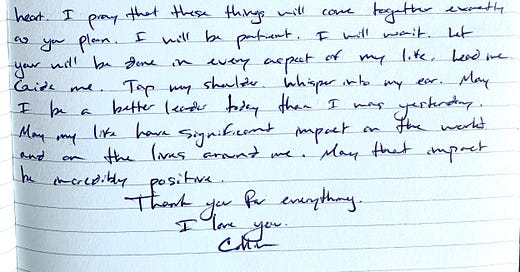 heart. I pray that these things will come together exactly
as you plan. I will be patient. I will wait. Let
your will be done in every aspect of my life. Lead me.
Guide me. Tap my shoulder. Whisper into my ear. May
I be a better leader today than I was yesterday.
May my life have significant impact on the world
and on the lives around me. May that impact
be incredibly positive.
Thank you for everything.
I love you.